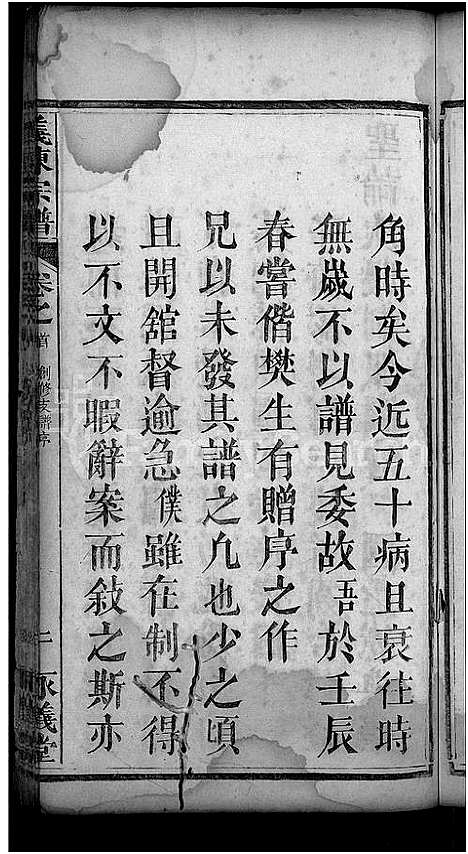 角時矣今近五十病且衰往時
無歲不以譜見委故吾於壬辰
春嘗偕樊生有贈序之作
兄以未發其譜之凡也少之頃
且開舘督逾急僕雖在制不得
以不文不暇辭案而敍之斯亦
義陳宗譜
卷之首 創修支譜序
二 承義堂